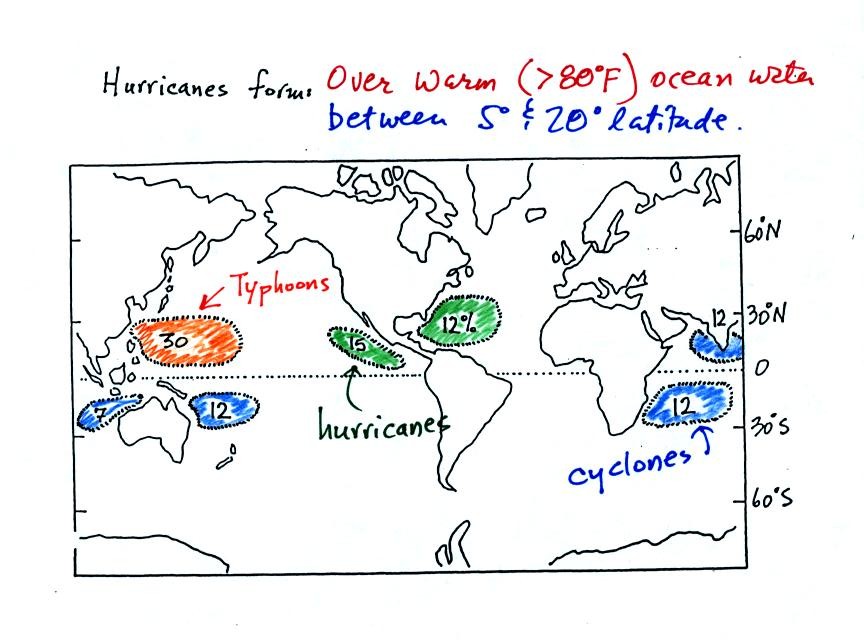 Hurricanes form: Over warm (>80°F) ocean water
between 5° & 20° latitude.
60°N
Typhoons
12 30°N
30 15 12%
0
7 12 12
hurricanes
30°S
cyclones
60°S